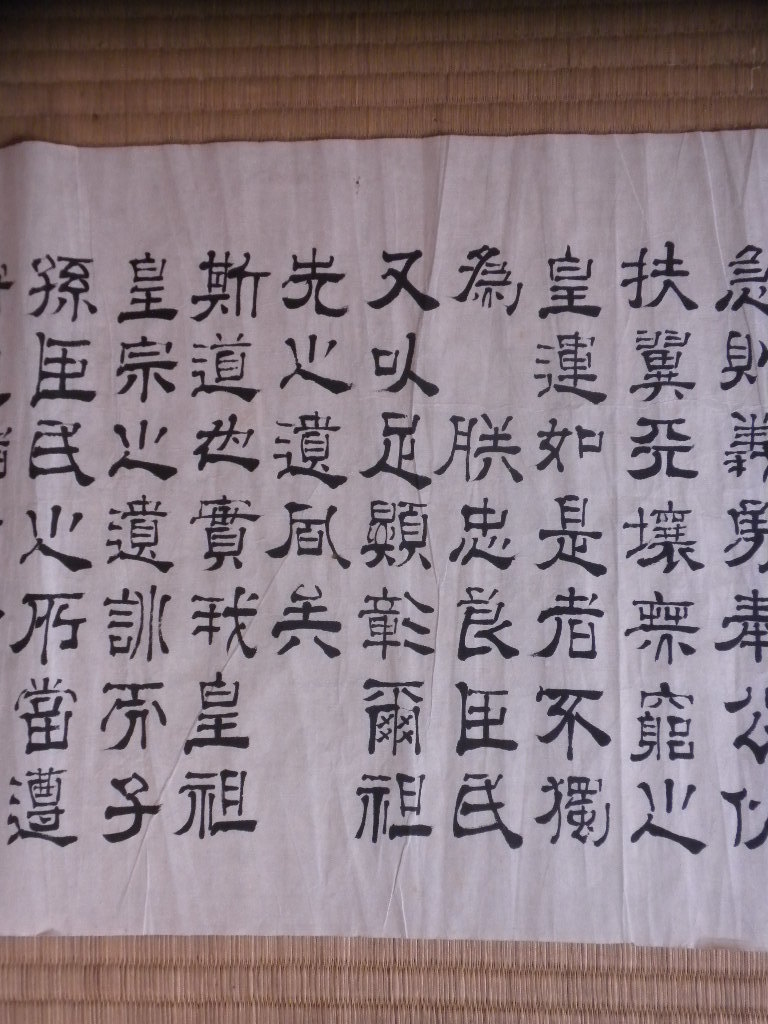 急則義勇奉公以
扶翼天壤無窮之
皇運如是者不獨
為 朕忠良臣民
又以足顯彰爾祖
先之遺風矣
斯道也實我皇祖
皇宗之遺訓而子
孫臣民之所當遵